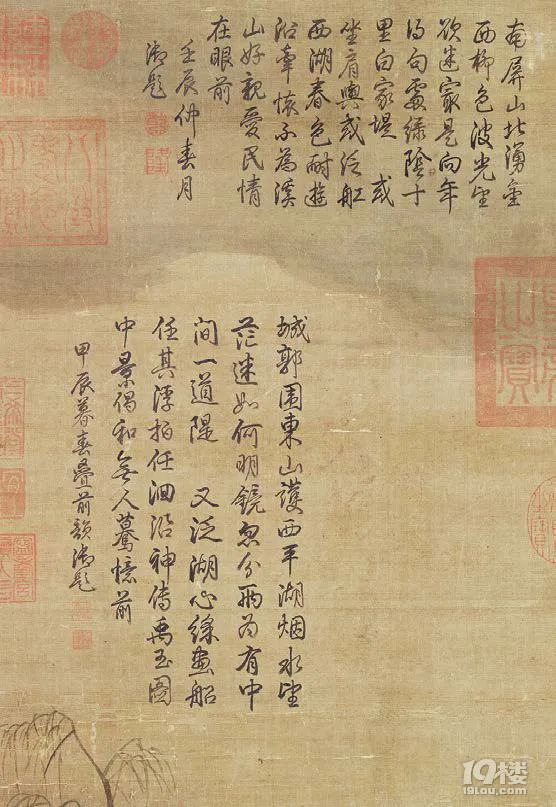 南屏山北湧金
西柳色波光望
欲迷最是向年
得句處綠陰十
里白家堤 或
坐肩輿或泛舡
西湖春色耐遊
沿牽懷不為溪
山好親愛民情
在眼前
壬辰仲春月
御題
城郭圍東山護西平湖烟水望
茫迷如何明鏡忽分兩為有中
間一道隄 又泛湖心綵畫船
任其浮拍任洄沿神傳禹玉圖
中景偶和無人驀憶前
甲辰暮春疊前韻御題
19楼
19lou.com